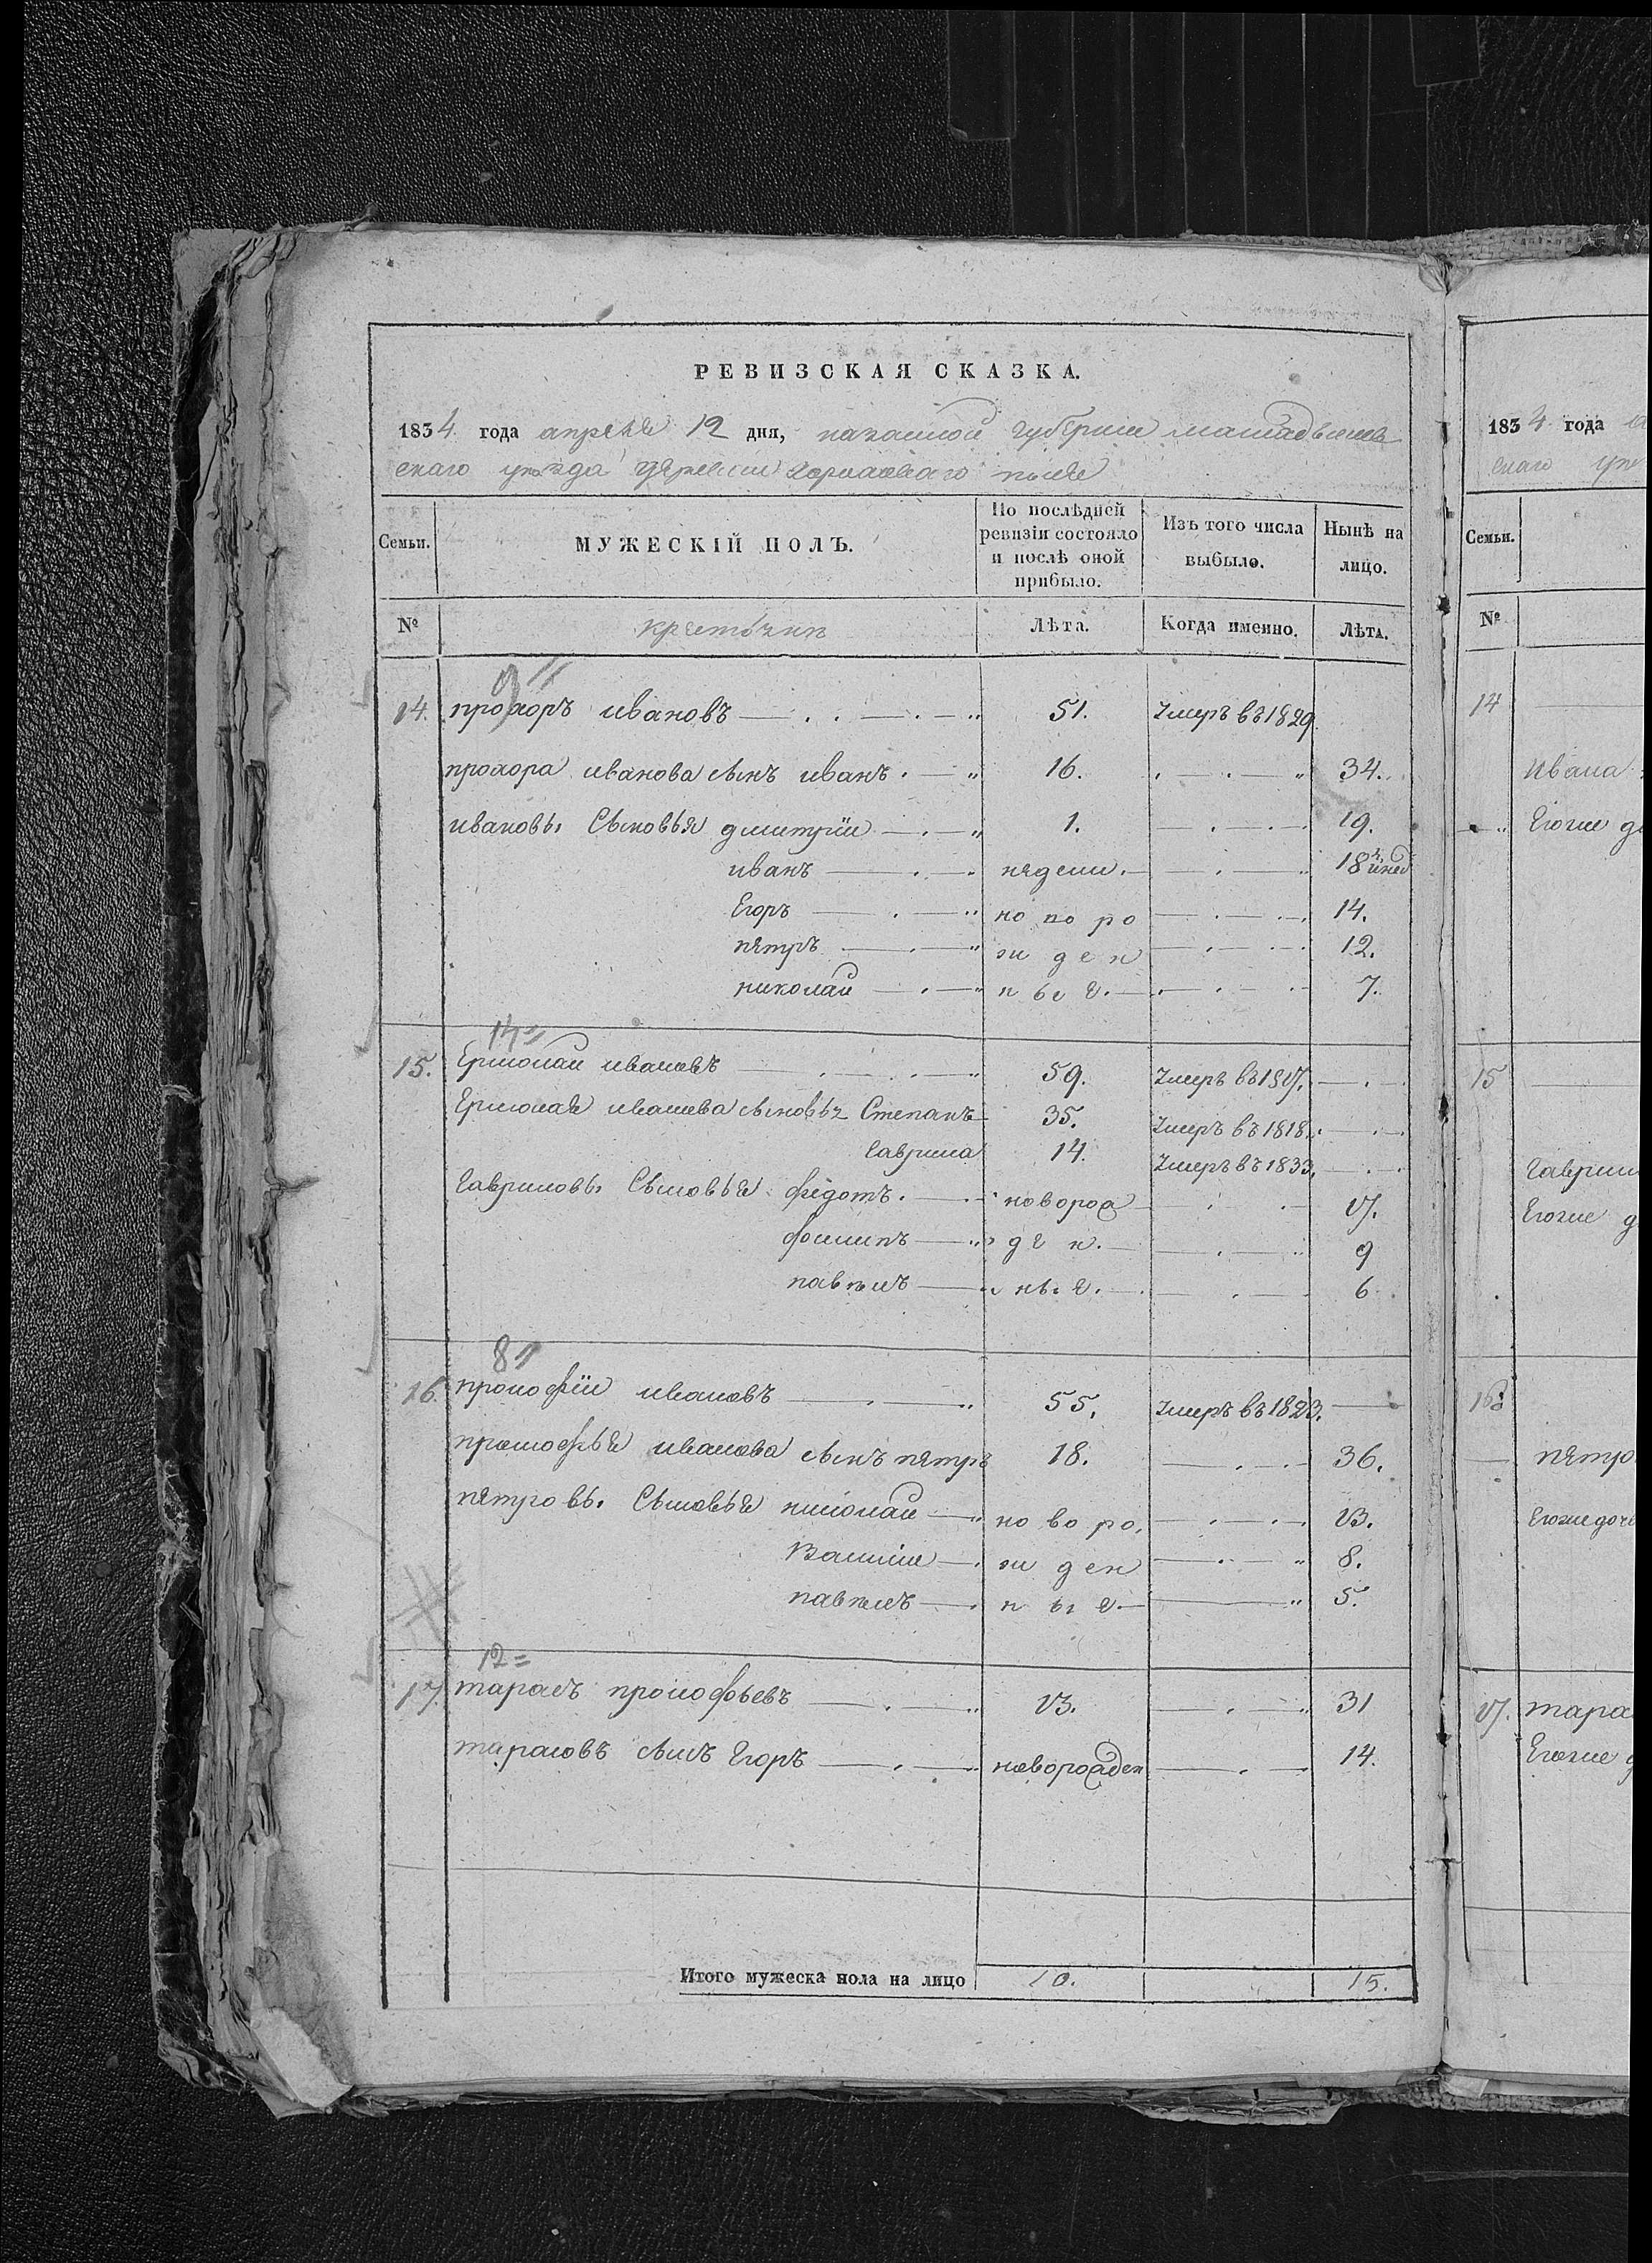 РЕВИЗСКАЯ СКАЗКА.
1834 года апреля 12 дня, казанской губернии мамадышев
скаго уезда деревни поля
Семьи.
МУЖЕСКІЙ ПОЛЪ.
По послѣдней ревизіи состояло и послѣ оной прибыло.
Изъ того числа выбыло.
Нынѣ на лицо.
№
Лѣта.
Когда именно.
Лѣта.
9
14. прохоръ ивановъ 51. Умеръ въ 1829
прохора иванова сынъ иванъ 16. 34.
ивановы Сыновья дмитрїи 1. 19.
иванъ недели. 18
Егоръ но во ро 14.
петръ ж ден 12.
николаи н ы е. 7.
14
15. Ермолаи ивановъ 59. Умеръ въ 1817.
Ермолая иванова сыновья Степанъ 35. Умеръ въ 1818.
Гаврила 14. Умеръ въ 1833.
Гавриловы Сыновья федотъ новорож 17.
филипъ де н. 9
павелъ ны е. 6
8
16. прокофїи ивановъ 55. Умеръ въ 1823.
прокофья иванова сынъ петръ 18. 36.
петровы Сыновья николаи но во ро. 13.
Василїи ж ден 8.
павелъ н ы е 5.
12
17. тарасъ прокофьевъ 13. 31
тарасовъ сынъ Егоръ новорожден 14.
Итого мужеска пола на лицо 10. 15.
1834 года
скаго уе
Семьи.
№
14
Ивана
Егоже до
15
Гаврил
Егоже д
16
петро
Егоже доче
17. тара
Егоже д